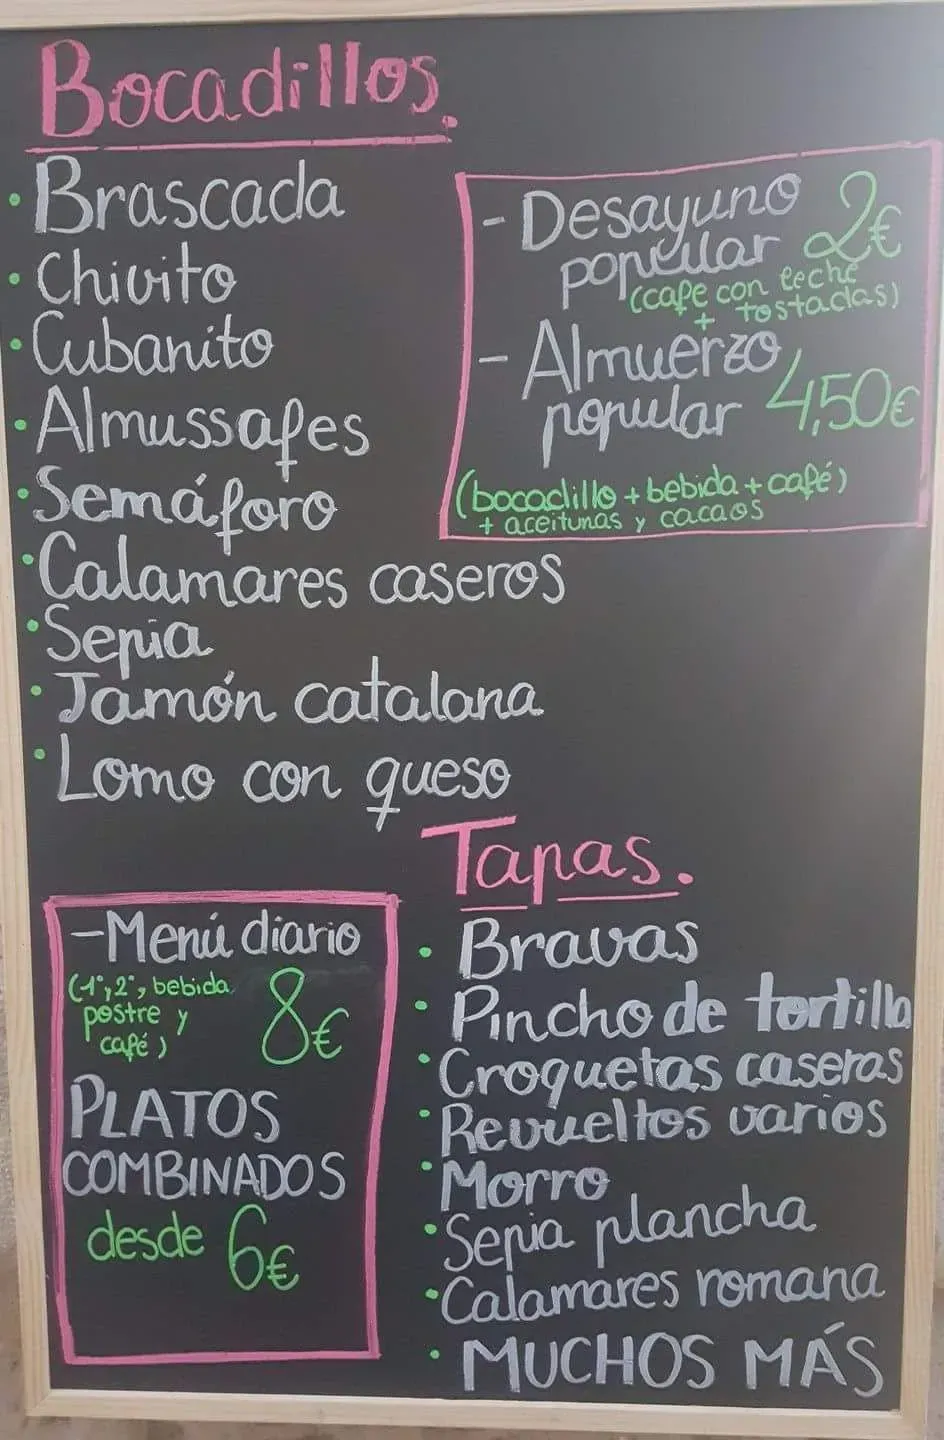 Bocadillos.
· Brascada
· Chivito
· Cubanito
· Almussafes
· Semáforo
· Calamares caseros
· Sepia
· Jamón catalana
· Lomo con queso
- Desayuno 2€
popular
(cafe con leche
+ tostadas)
- Almuerzo
popular 4,50€
(bocadillo + bebida + café)
+ aceitunas y cacaos
- Menú diario
(1º, 2º, bebida
postre y 8€
café)
PLATOS
COMBINADOS
desde 6€
Tapas.
· Bravas
· Pincho de tortilla
· Croquetas caseras
· Revueltos varios
· Morro
· Sepia plancha
· Calamares romana
· MUCHOS MÁS